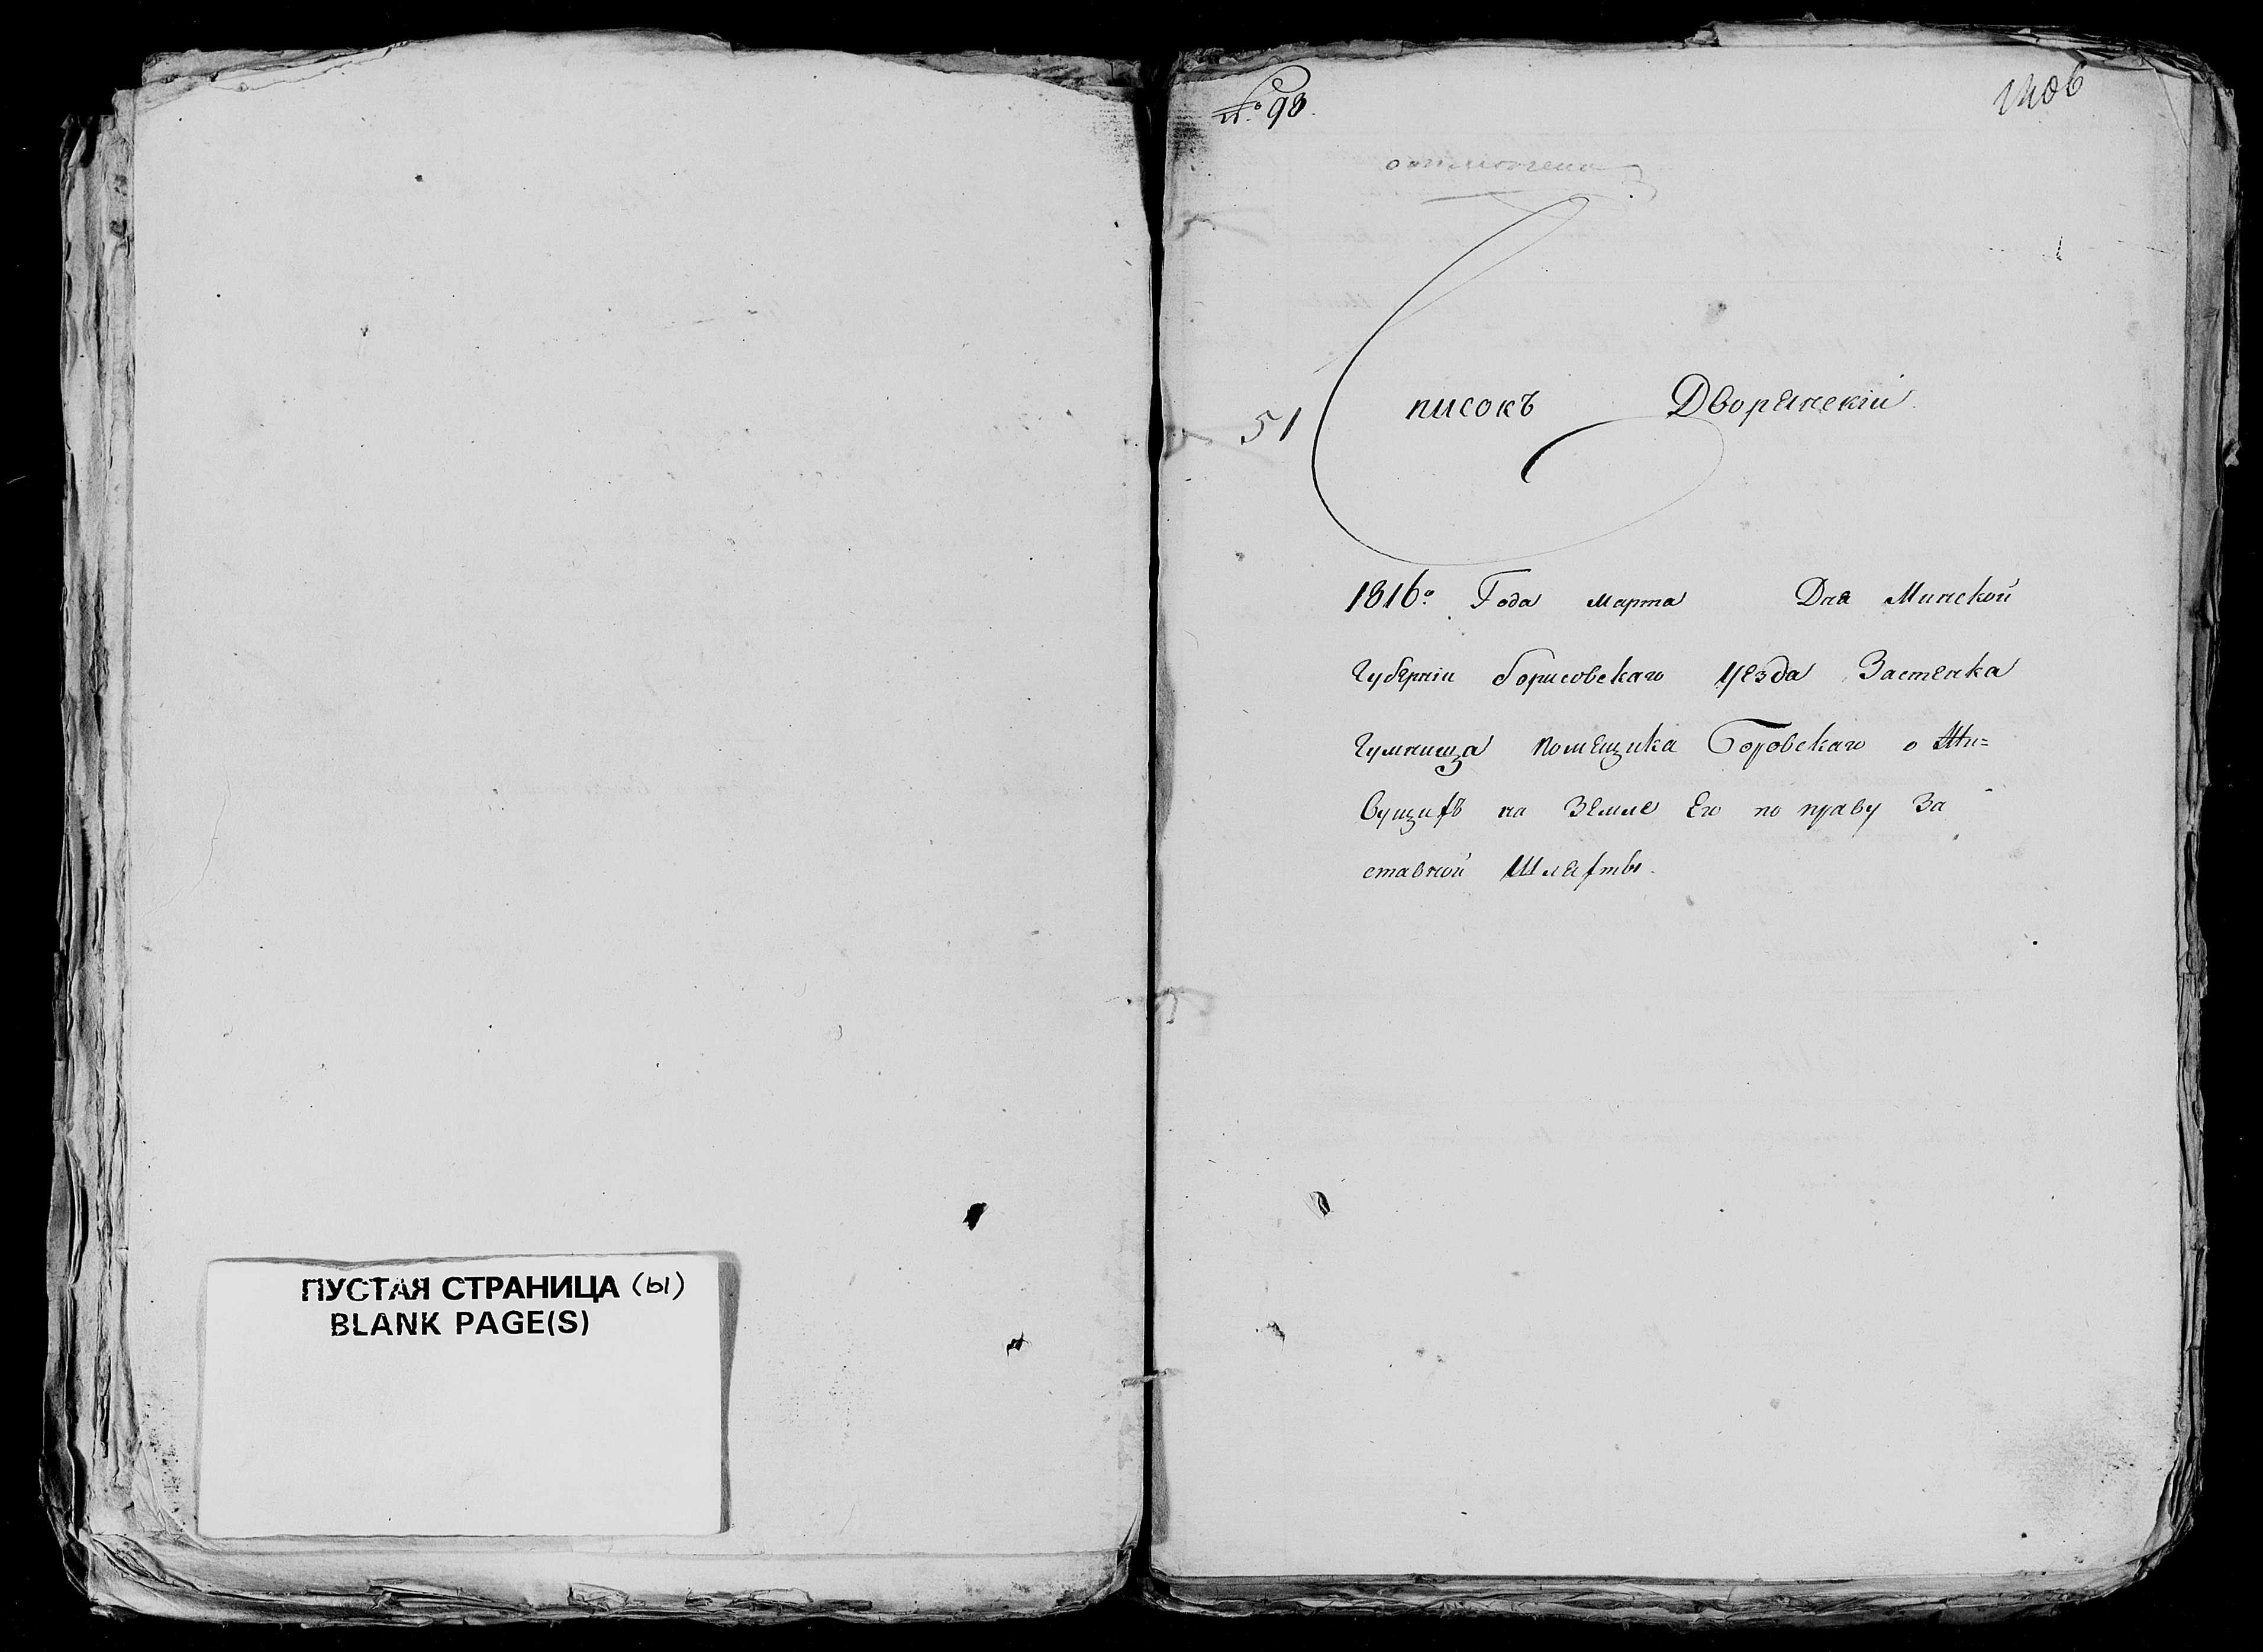 ПУСТАЯ СТРАНИЦА (ы)
BLANK PAGE(S)
№ 93.
1406
51
Списокъ Дворянскій
1816го Года марта Дня Минской
Губерніи Борисовскаго уезда Застенка
Гумнища помещика Боровскаго о Жи=
вущихъ на Земле Его по праву За
ставной Шляхты.